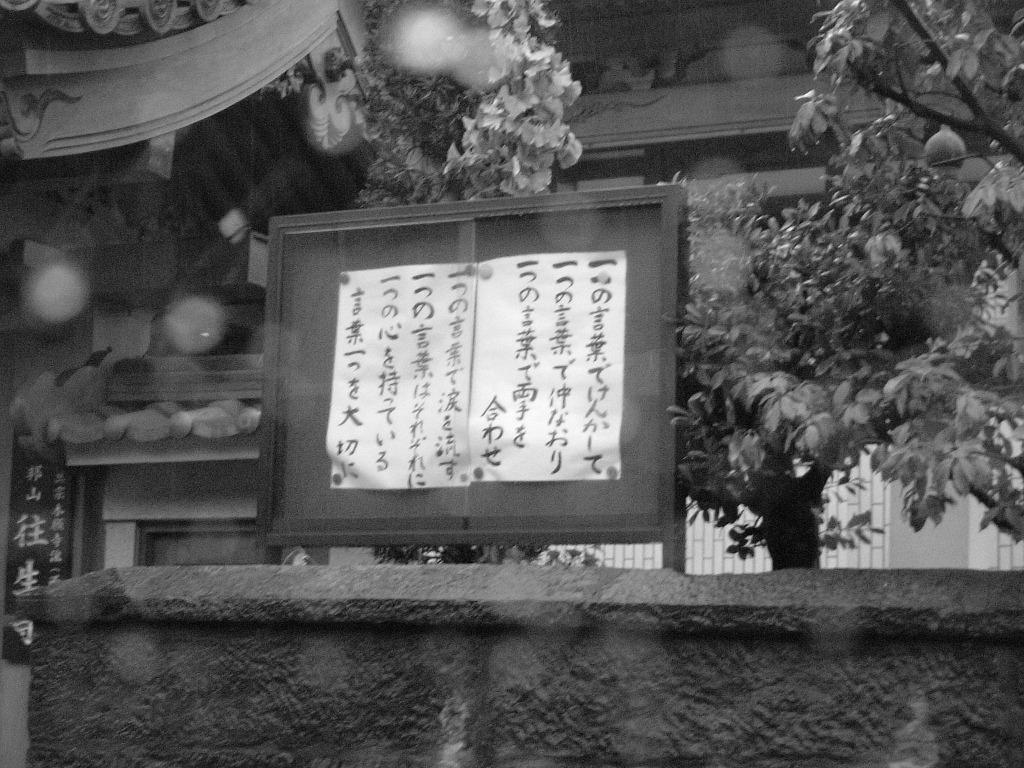 一つの言葉でけんかして
一つの言葉で仲なおり
一つの言葉で両手を
合わせ
一つの言葉で涙を流す
一つの言葉はそれぞれに
一つの心を持っている
言葉一つを大切に
邦山 往生